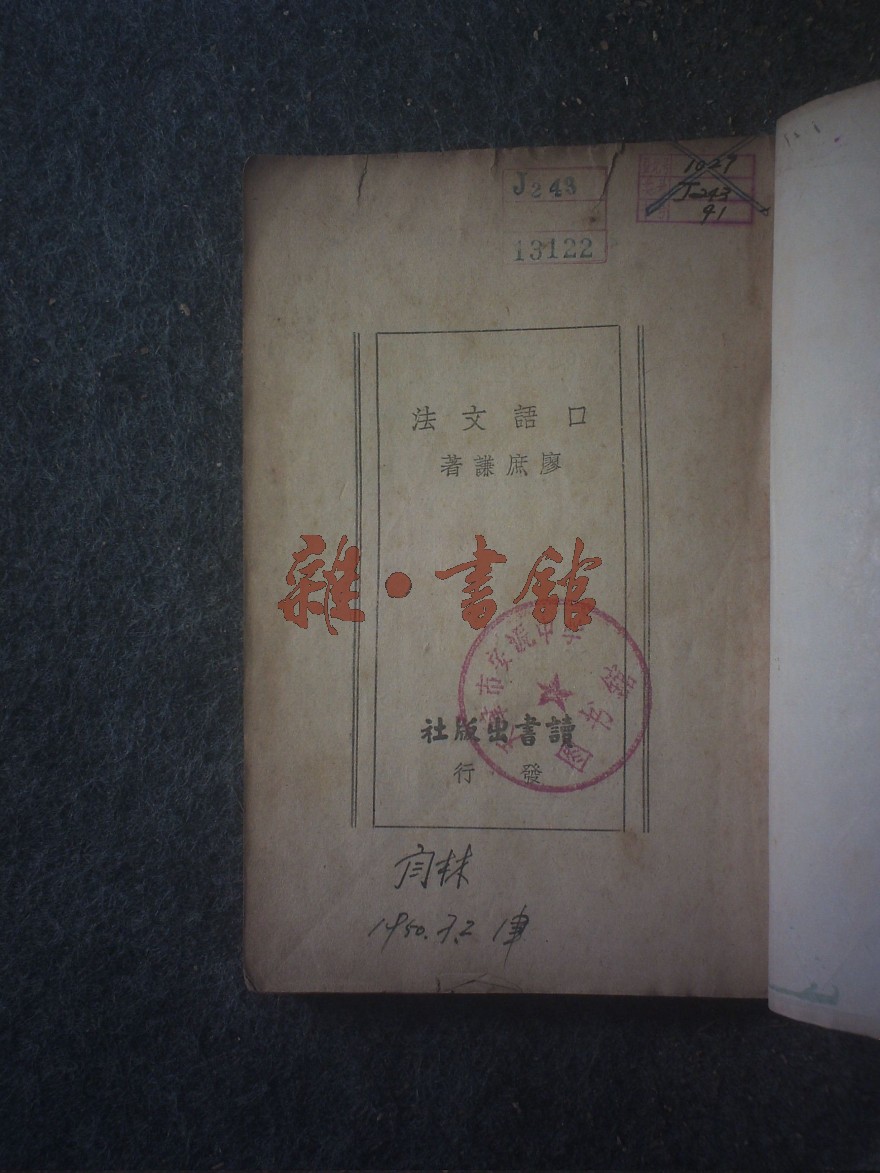 J243
13122
1029
J243
91
口語文法
廖庶謙著
雜·書館
讀書出版社
發行
图书馆
1950.3.2 津